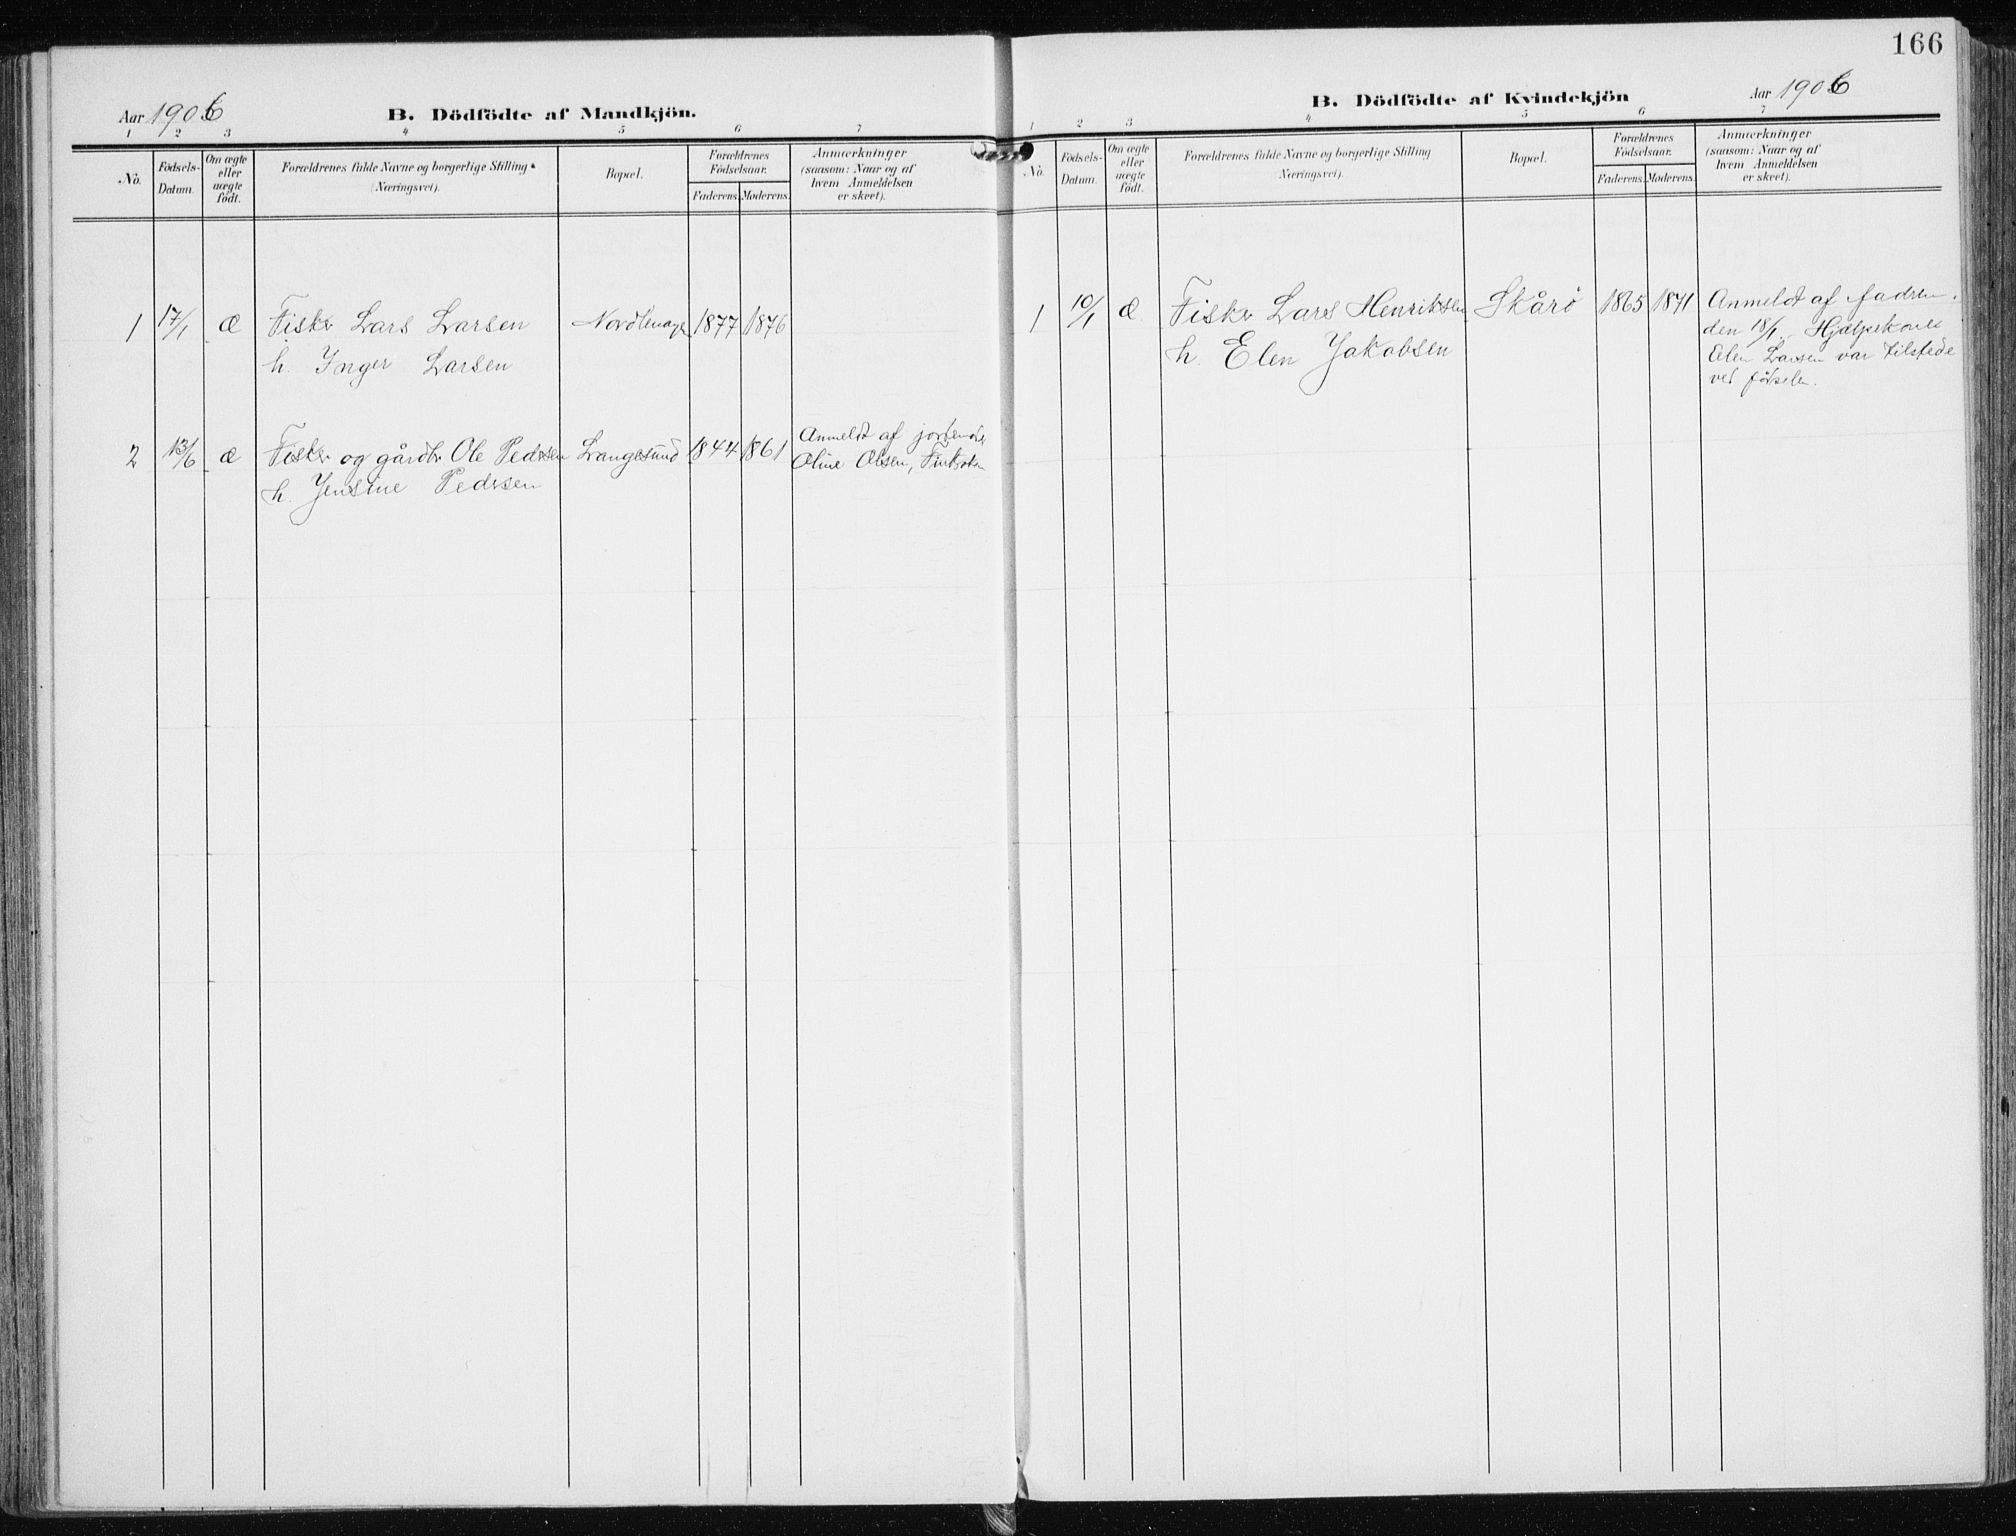 166
Aar 1906
B. Dödfödte af Mandkjön.
1 2 3 4 5 6 7
No.
Födsels-Datum.
Om ægte eller uægte födt.
Forældrenes fulde Navne og borgerlige Stilling (Næringsvei).
Bopæl.
Forældrenes Födselsaar.
Faderens. Moderens.
Anmærkninger (saasom: Naar og af hvem Anmeldelsen er skeet).
1 17/1 æ Fisker Lars Larsen 1877 1876
h. Inger Larsen
2 13/6 æ Fisker og gårdbr Ole Pedersen Langesund 1844 1861 Anmeldt af
h. Jensine Pedersen Oline Olsen,
Aar 1906
B. Dödfödte af Kvindekjön
1 2 3 4 5 6 7
No.
Födsels-Datum.
Om ægte eller uægte födt.
Forældrenes fulde Navne og borgerlige Stilling (Næringsvei).
Bopæl.
Forældrenes Födselsaar.
Faderens. Moderens.
Anmærkninger (saasom: Naar og af hvem Anmeldelsen er skeet).
1 10/1 æ Fisker Lars Henriksen Skårø 1865 1871 Anmeldt af fadren
h. Elen Jakobsen den 18/1. Hjælpekone
Elen Larsen var tilstede
ved fødselen.